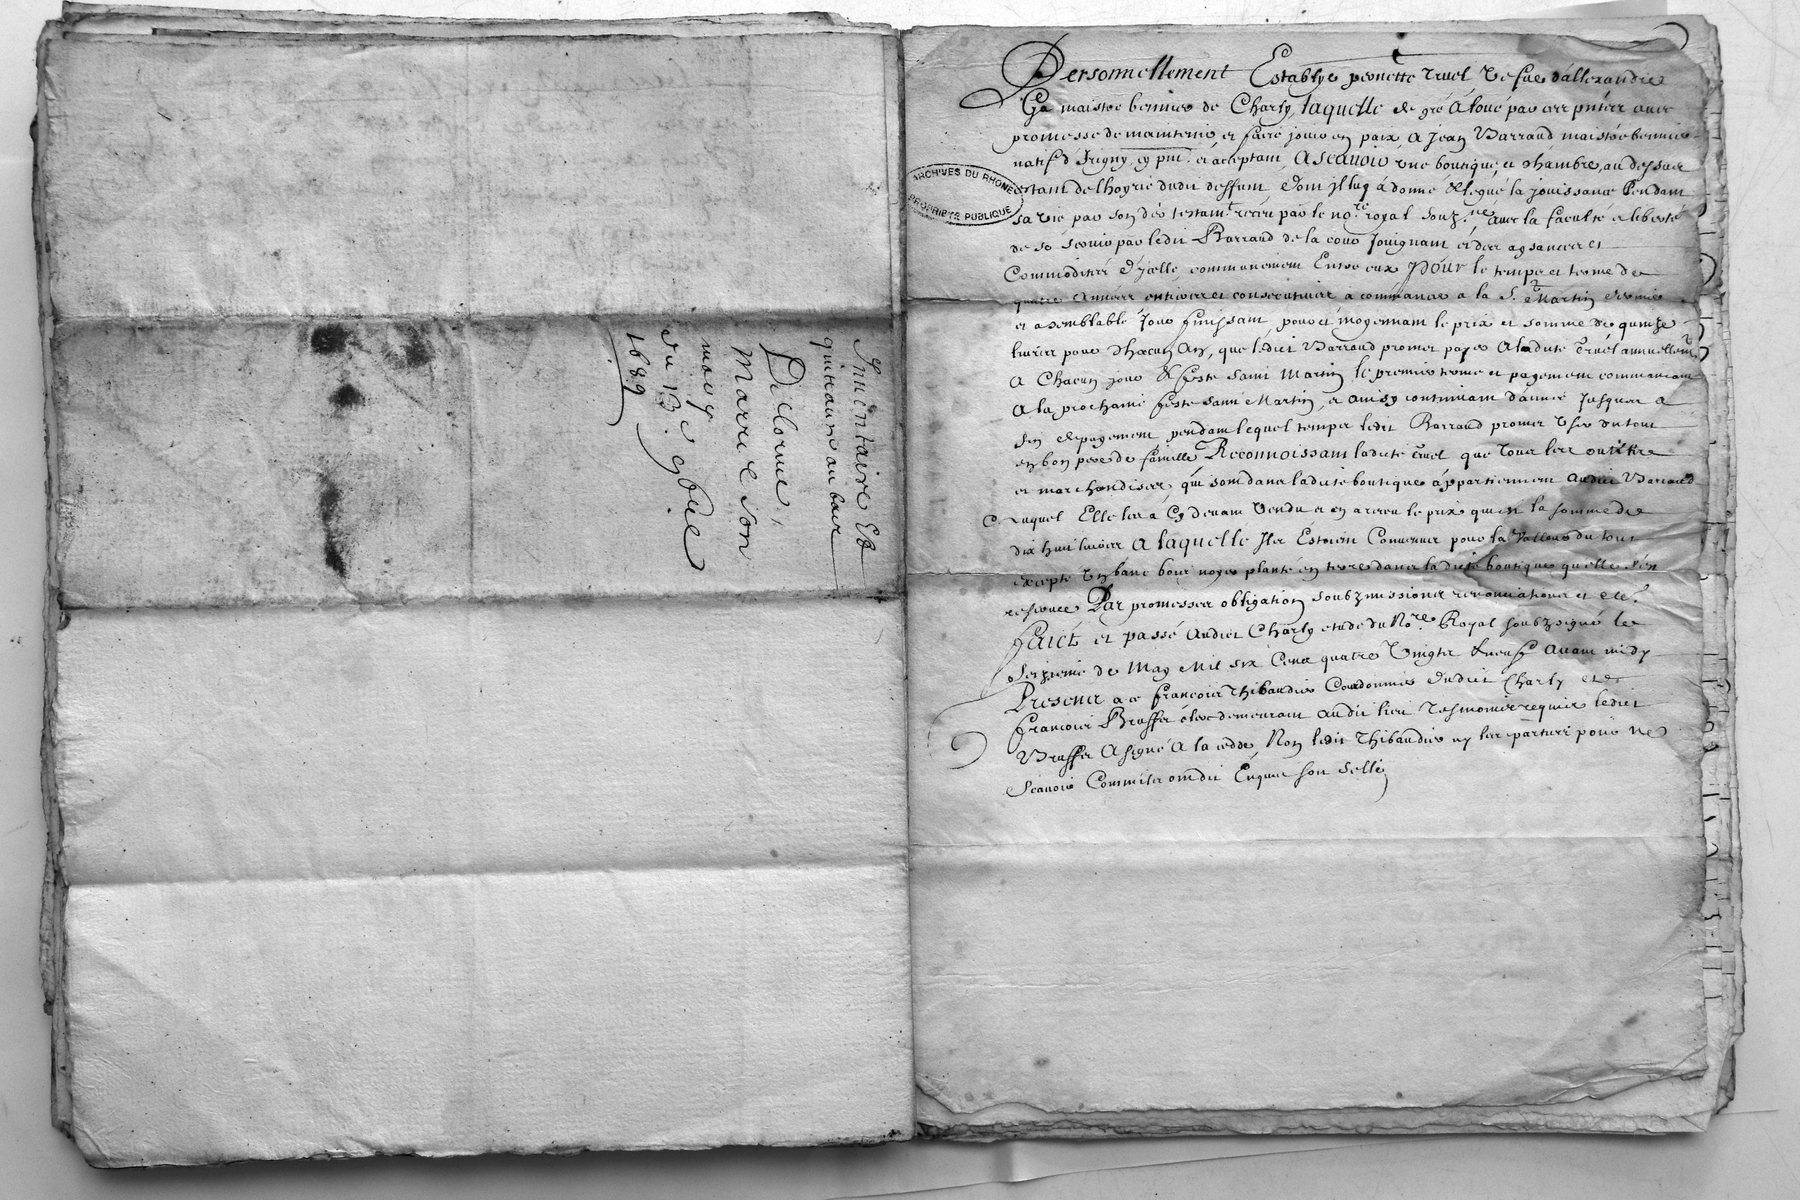 Inuentaire Et
quiteance au bas
Delorme,
Marre e son
mary
du 13.e
1689
ARCHIVES DU RHONE
PROPRIETE PUBLIQUE
Personnellement Establye pernette truel vefue d'allexandre
maistre bennier de Charly, laquelle de gré A loué par ces pntes auec
promesse de maintenir et faire jouir en paix A Jean Barraud maistre bennier
natif d'Irigny, cy pnt. et aceptant, Ascauoir vne boutique, et chambre, au dessus
estant de l'hoyrie dudit deffunt dont jl luy à donné & legué la jouissance Pendant
sa vie par son der testamt. receu par le no.re royal souz.né auec la faculté et liberté
de se seruir par ledit Barraud de la cour Joignant et des aysances et
Commodites d'jcelle, communement Entre eux Pour le temps et terme de
quatre Années entieres et consecutiues a commancer a la St. Martin dernier
et a semblable Jour finissant, pour et moyennant le prix et somme de quinze
liures pour chacun An, que ledict Barraud promet payer A ladite truel annuellemt.
A Chacun jour & feste saint Martin le premier terme et payement commancant
A la prochaine feste saint Martin, et ainsy continuant d'année Jusques a
fin de payement, pendant lequel temps ledit Barraud promet vser du tout
en bon pere de famille Reconnoissant ladite truel que Tous les outilz
et marchandises qui sont dans ladite boutique appartiennent audit Barraud
Auquel Elle les a Cy deuant Vendu et en a receu le prix quest la somme de
dix huit liures A laquelle Ilz Estoient Conuenus pour la Valleur du tout
excepté Vn banc bois noyer planté en terre dans la dite boutique quelle s'en
reserue Par promesses obligation soubzmissions renonciations et etc.
faict et passé Audict Charly etude du No.re Royal soubzsigné le
seizieme de May Mil six Cens quatre Vingts & neuf auant midy
Presens a ce francois thibaudier Cordonnier dudict Charly et
francois Bruffer clerc demeurant audit lieu tesmoins requis ledict
Bruffer A signé A la cedde, Non ledit thibaudier ny les parties pour ne
scauoir Comme ilz ont dit Enquis sont selle